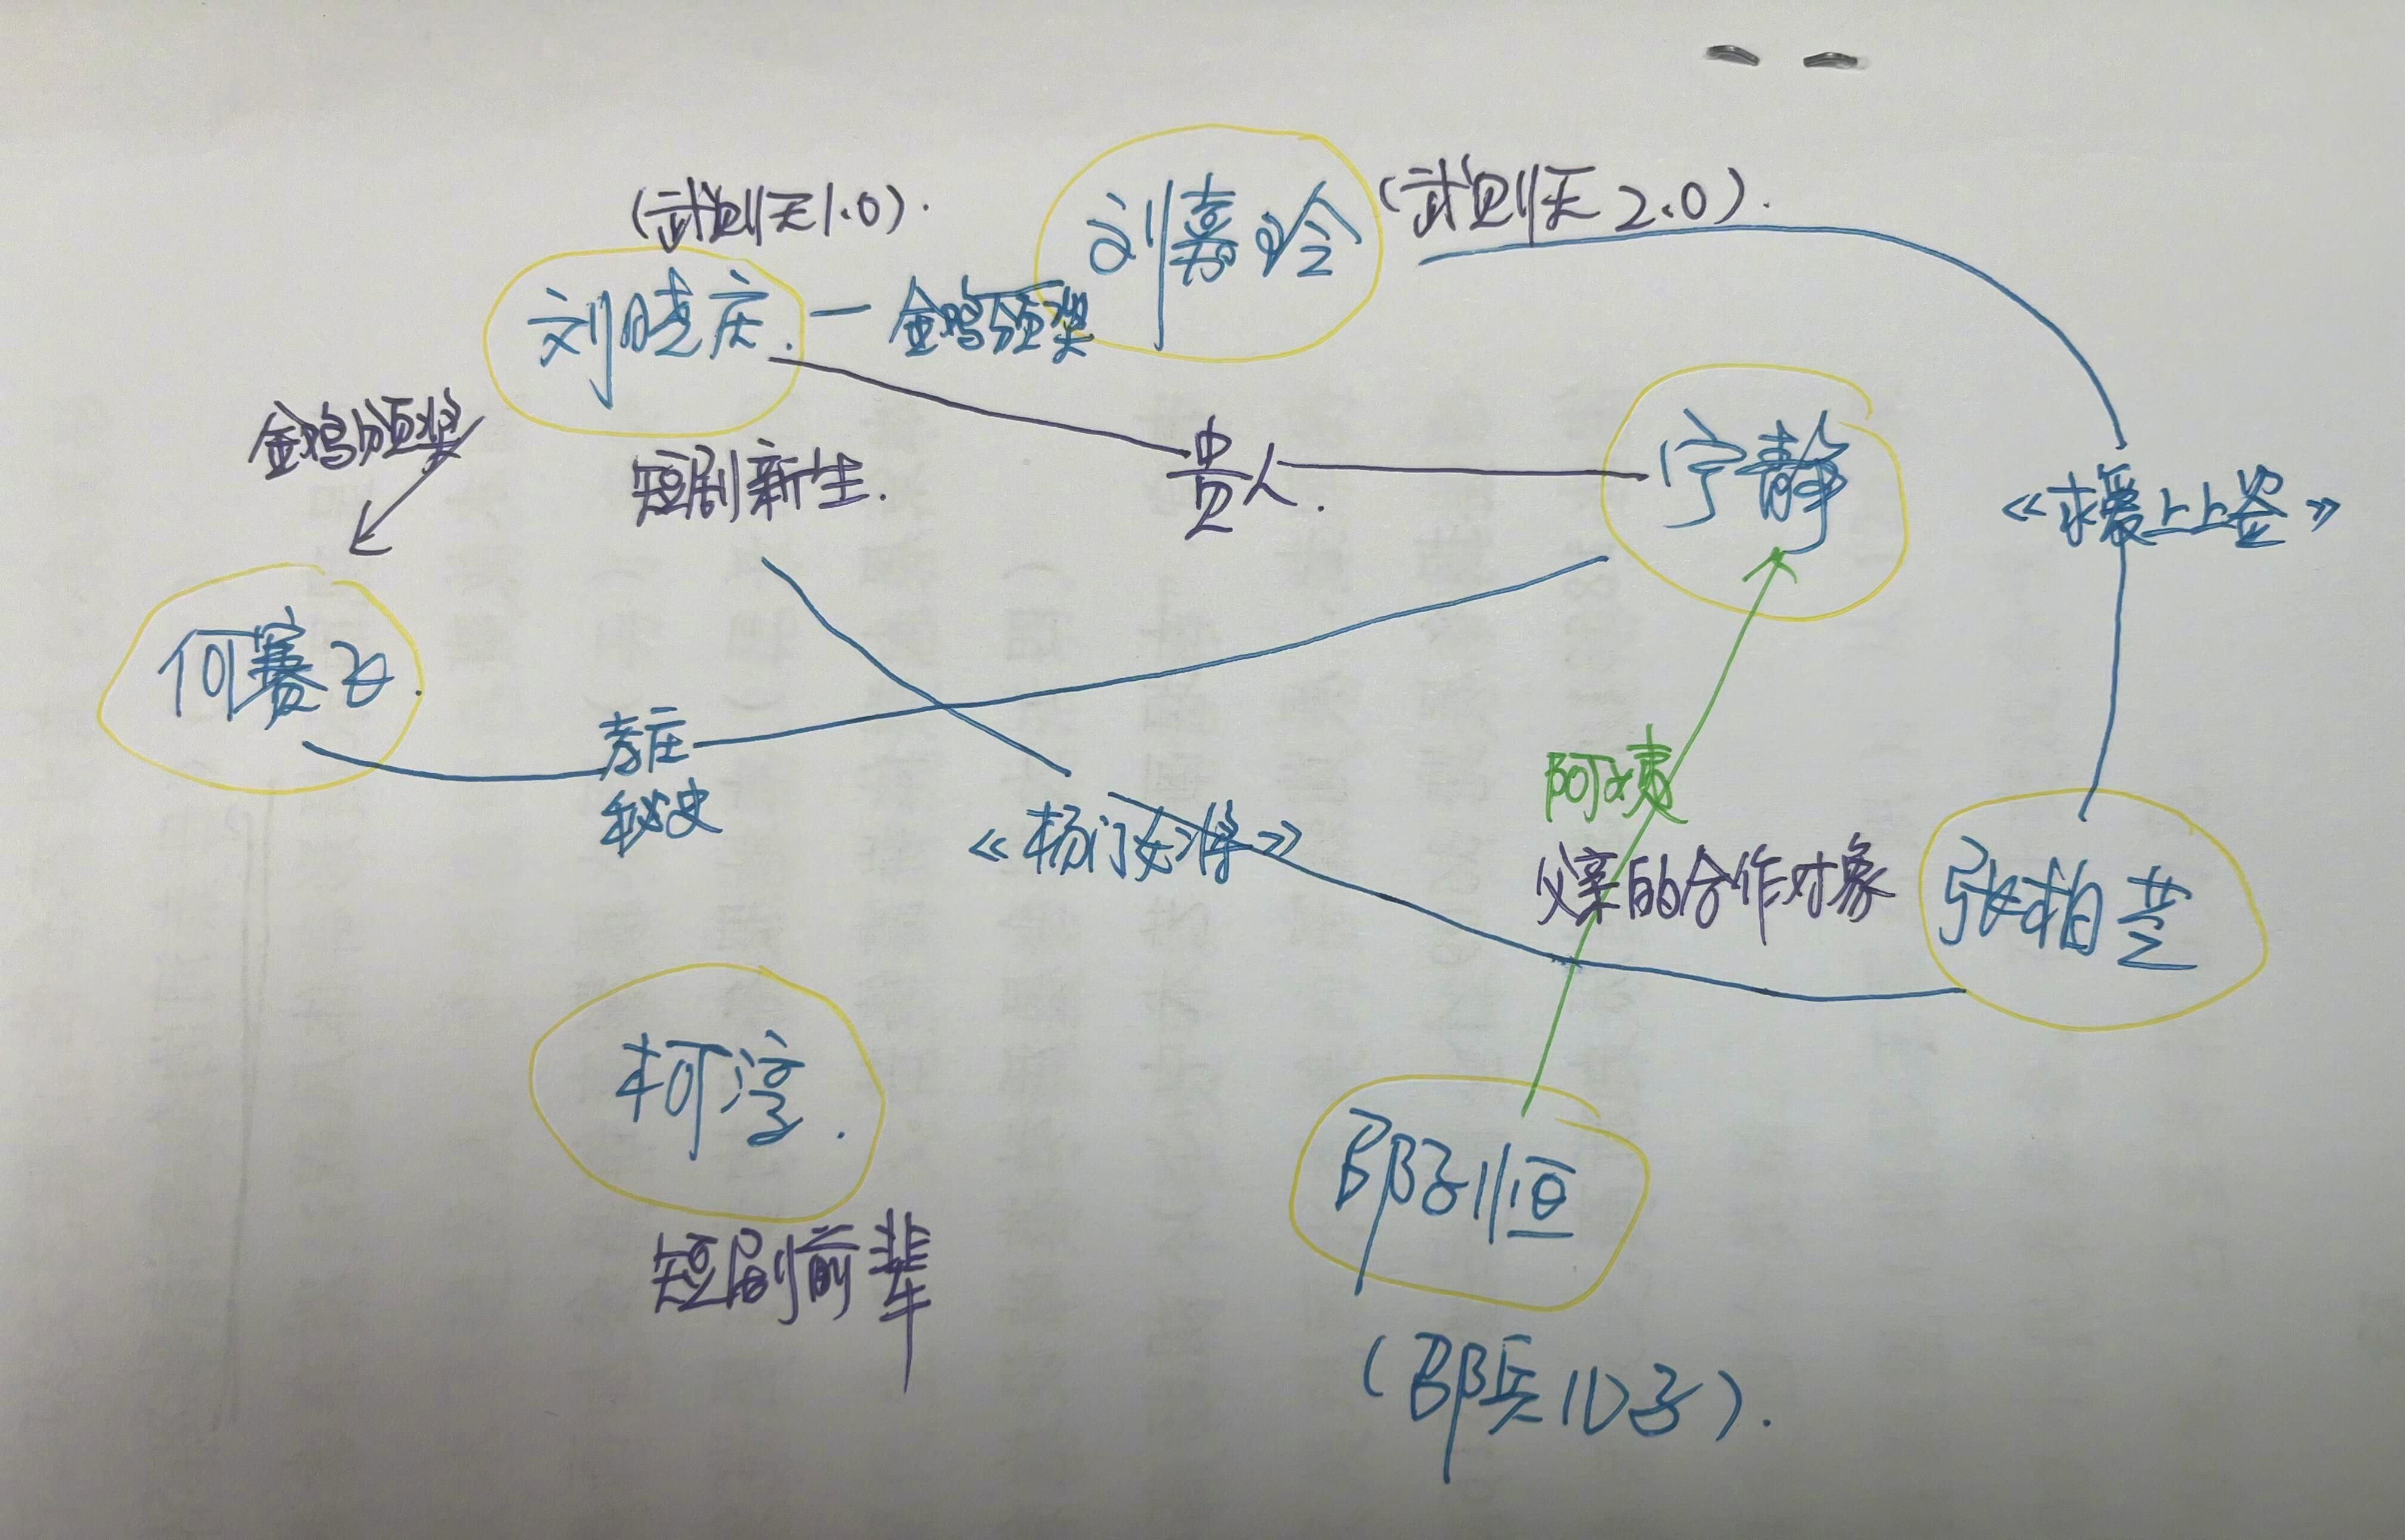 (武则天1.0).
刘嘉玲
(武则天2.0).
刘晓庆.
金鸡颁奖
金鸡颁奖
短剧新生.
贵人.
宁静
《求爱上上签》
何赛飞.
孝庄
秘史
《杨门女将》
阿姨
父亲的合作对象
张柏芝
柯淳.
短剧前辈
邵子恒
(邵兵儿子).